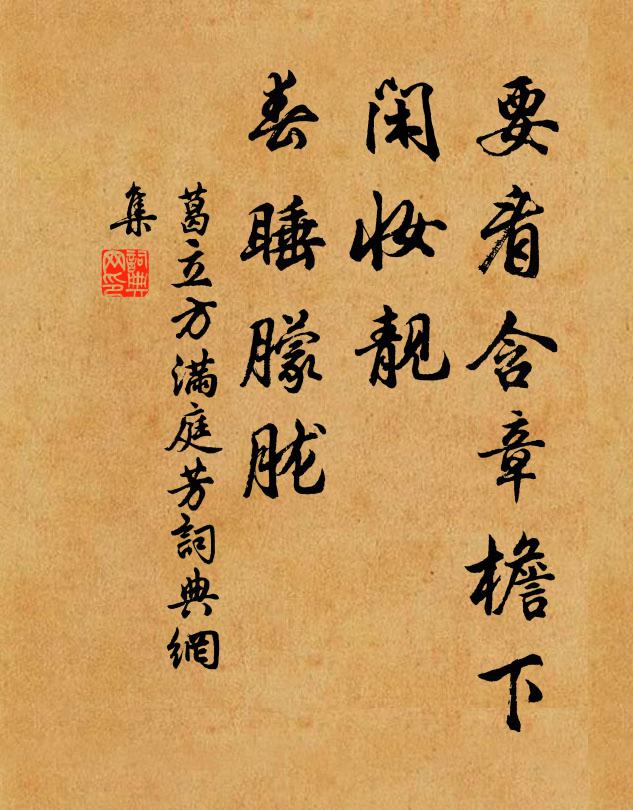 要看含章檐下
闲妆靓
春睡朦胧
葛立方满庭芳詞典網
集
詞典
网印